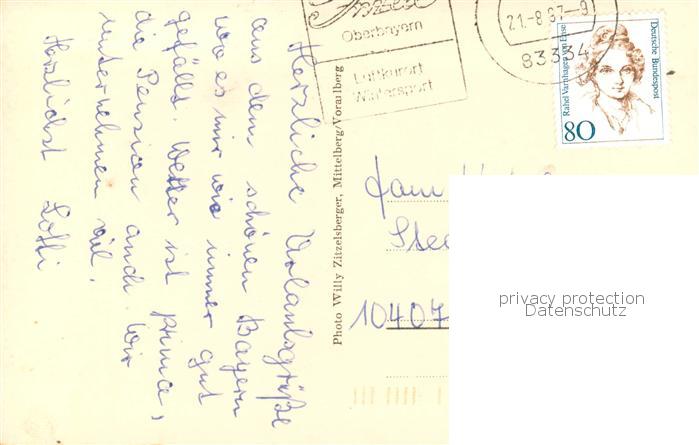 Herzliche Urlaubsgrüße
aus dem schönen Bayern
wo es mir wie immer gut
gefällt. Wetter ist prima,
die Pension auch. Wir
unternehmen viel.
Herzlichst Lotti
Oberbayern
Luftkurort
Wintersport
21.-8.97-9
83334
Deutsche Bundespost
Rahel Varnhagen von Ense
80
Photo Willy Zitzelsberger, Mittelberg/Vorarlberg
10407
privacy protection
Datenschutz